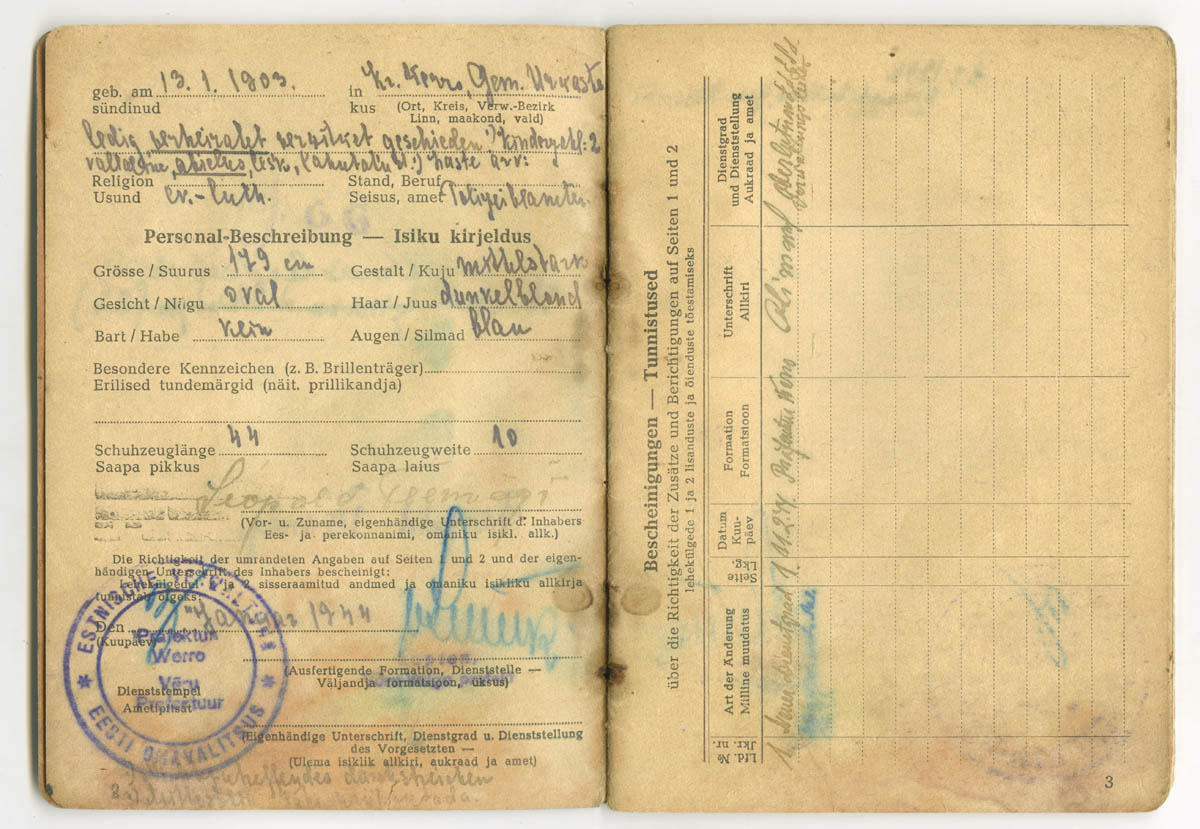 geb. am 13. 1. 1903. in Kr. Werro, Gem. Urvaste
sündinud kus (Ort, Kreis, Verw.-Bezirk
Linn, maakond, vald)
ledig, verheiratet verwitwet geschieden Kinderzahl: 2
vallaline, abielus, lesk, laste arv:
Religion Stand, Beruf
Usund ev.-luth. Seisus, amet Polizeibeamter.
Personal-Beschreibung — Isiku kirjeldus
Grösse / Suurus 179 cm Gestalt / Kuju mittelstark
Gesicht / Nägu oval Haar / Juus dunkelblond
Bart / Habe kein Augen / Silmad blau
Besondere Kennzeichen (z. B. Brillenträger)
Erilised tundemärgid (näit. prillikandja)
Schuhzeuglänge 44 Schuhzeugweite 10
Saapa pikkus Saapa laius
Leopold
(Vor- u. Zuname, eigenhändige Unterschrift d. Inhabers
Ees- ja perekonnanimi, omaniku isikl. allk.)
Die Richtigkeit der umrandeten Angaben auf Seiten 1 und 2 und der eigen-
händigen Unterschrift des Inhabers bescheinigt:
Lehekülgedel 1 ja 2 sisseraamitud andmed ja omaniku isikliku allkirja
tunnistab õigeks:
Den Januar 1944
(Kuupäev)
(Ausfertigende Formation, Dienststelle —
Väljandja formatsioon, üksus)
Dienststempel
Ametipitsat
ESTNISCHE VERWALTUNG
Präfektur
Werro
Võru
Prefektuur
EESTI OMAVALITSUS
(Eigenhändige Unterschrift, Dienstgrad u. Dienststellung
des Vorgesetzten —
(Ülema isiklik allkiri, aukraad ja amet)
durchstreichen
Bescheinigungen — Tunnistused
über die Richtigkeit der Zusätze und Berichtigungen auf Seiten 1 und 2
lehekülgede 1 ja 2 lisanduste ja õienduste tõestamiseks
Lfd. № Art der Änderung Seite Datum Formation Unterschrift Dienstgrad
Jkr. nr. Milline muudatus Lkg. Kuu- Formatsioon Allkiri und Dienststellung
päev Aukraad ja amet
1. Dienstgrad 1 Präfektur Werro
3